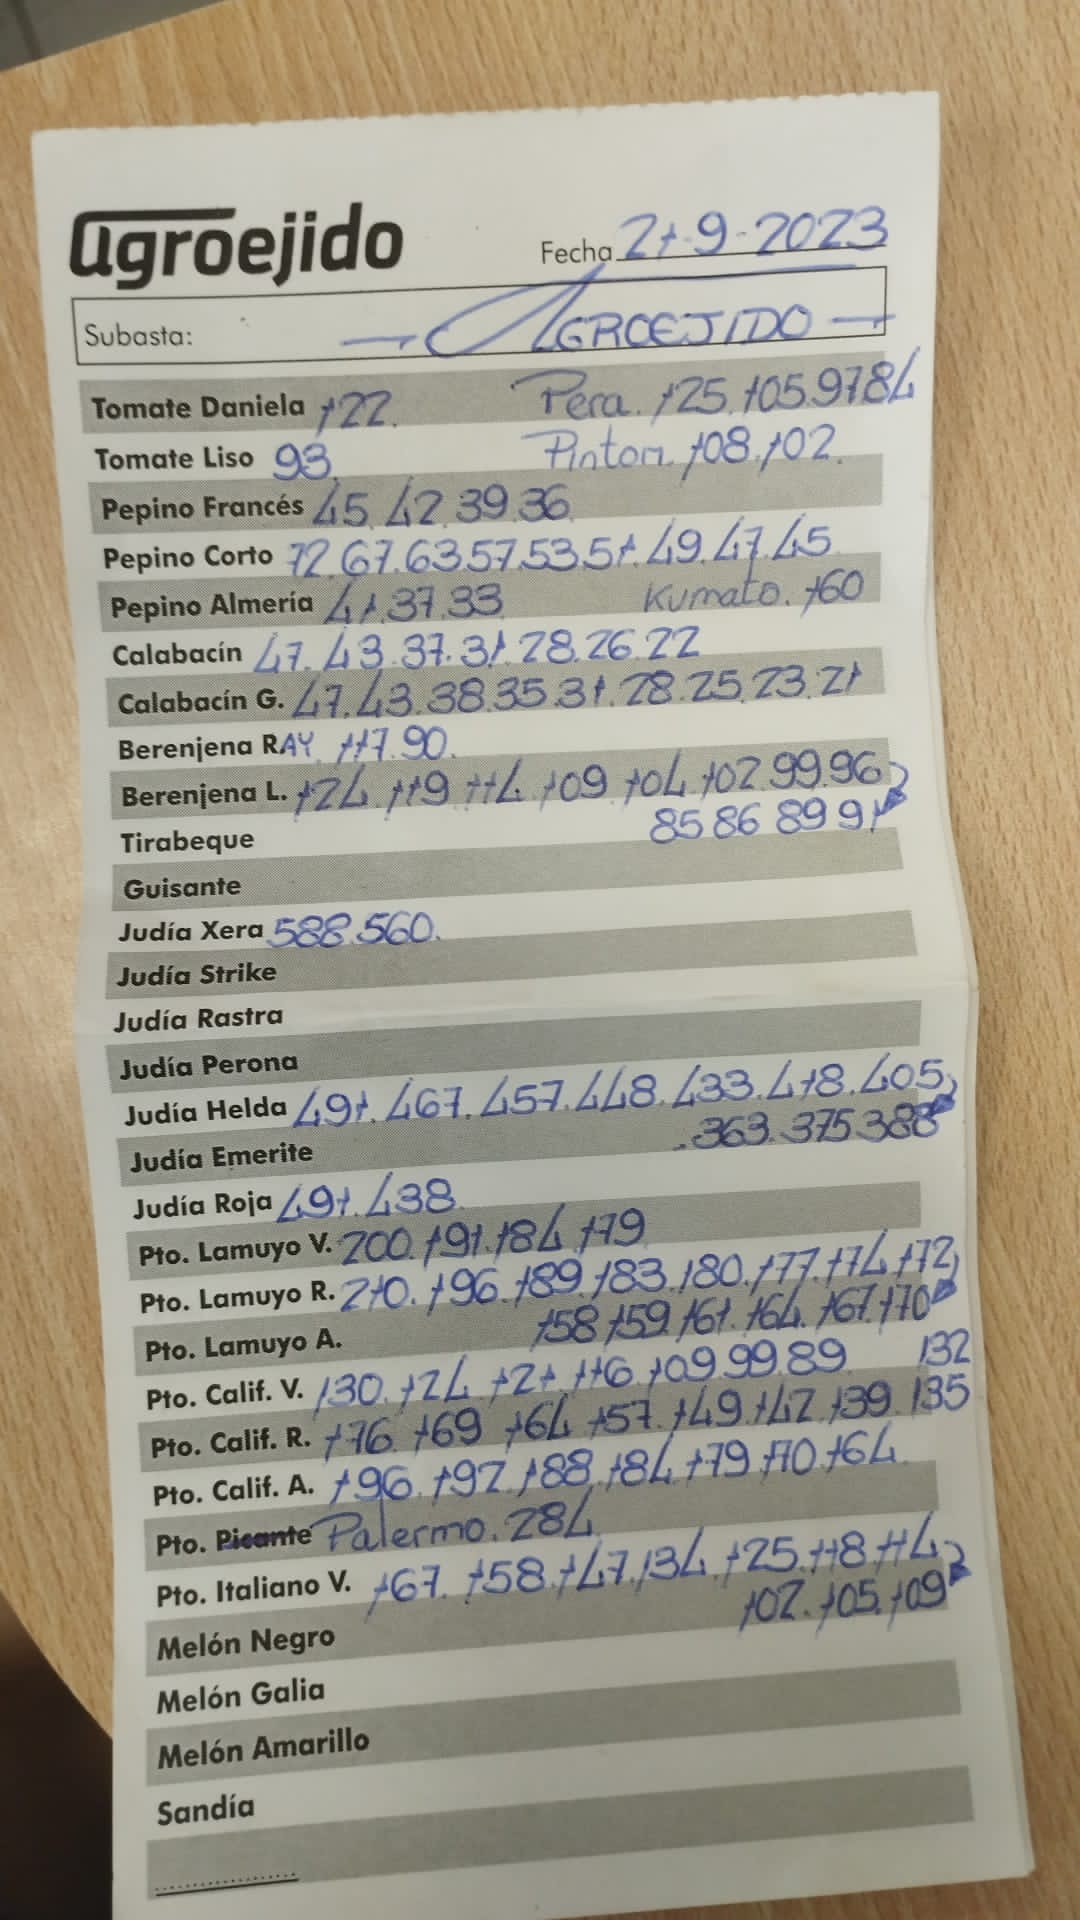 agroejido
Fecha 21-9-2023
Subasta: AGROEJIDO
Tomate Daniela 122. Pera. 125.105.97.84
Tomate Liso 93. Pinton. 108.102.
Pepino Francés 45.42.39.36
Pepino Corto 72.67.63.57.53.51.49.47.45
Pepino Almería 41.37.33 Kumato. 160
Calabacín 47.43.37.31.28.26.22
Calabacín G. 47.43.38.35.31.28.25.23.21
Berenjena RAY 117.90.
Berenjena L. 124.119.114.109.104.102.99.96
Tirabeque 85 86 89 91
Guisante
Judía Xera 588.560.
Judía Strike
Judía Rastra
Judía Perona
Judía Helda 491.467.457.448.433.418.405
Judía Emerite .363.375.388
Judía Roja 491.438
Pto. Lamuyo V. 200.191.184.179
Pto. Lamuyo R. 210.196.189.183.180.177.174.172
Pto. Lamuyo A. 158.159.161.164.167.170
Pto. Calif. V. 130.124.121.116.109.99.89 132
Pto. Calif. R. 176.169.164.157.149.142.139.135
Pto. Calif. A. 196.192.188.184.179.170.164
Pto. Picante Palermo. 284
Pto. Italiano V. 167.158.147.134.125.118.114
Melón Negro 102.105.109
Melón Galia
Melón Amarillo
Sandía